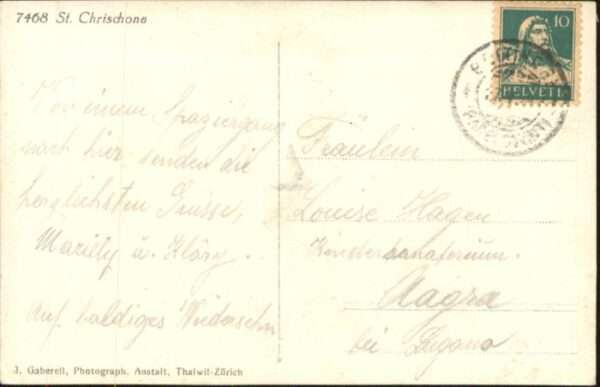 7468 St. Chrischona
10
HELVETIA
Von einem Spaziergang
nach hier senden die
herzlichsten Grüsse,
Marilly u. Kläry.
Auf baldiges Wiedersehn
Fräulein
Louise Hagen
Kindersanatorium.
Agra
bei Lugano
J. Gaberell, Photograph. Anstalt, Thalwil-Zürich